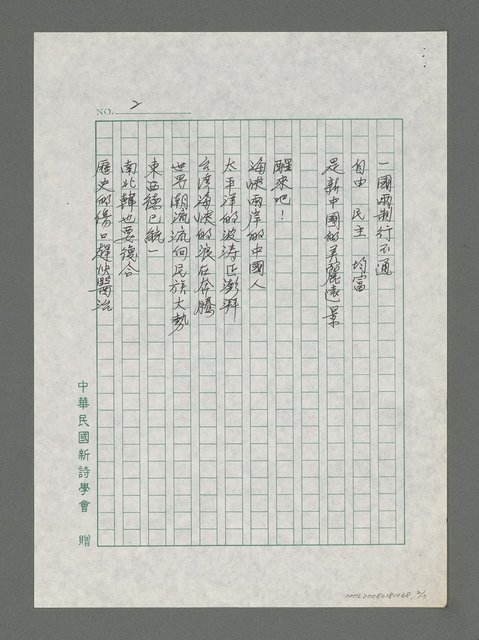 NO. 2
一國兩制行不通
自由 民主 均富
是新中國的美麗遠景
醒來吧！
海峽兩岸的中國人
太平洋的波濤正澎湃
台灣海峽的浪在奔騰
世界潮流流向民族大勢
東西德已統一
南北韓也要復合
歷史的傷口趕快醫治
中華民國新詩學會 贈
NMTL20080181068, 2/3